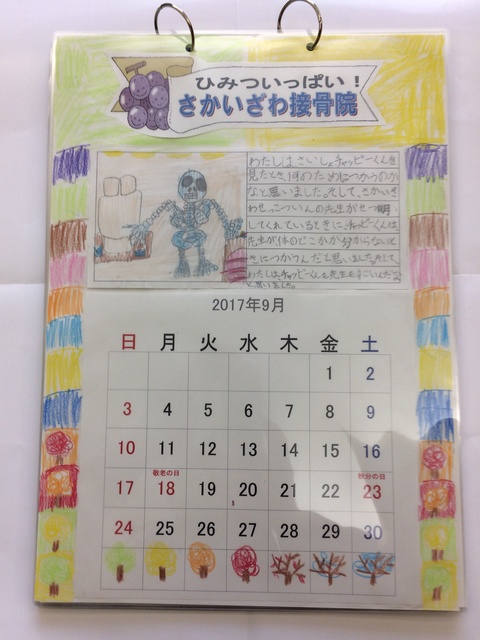 ひみついっぱい！
さかいざわ接骨院
わたしはさいしょチャッピーくんを
見たとき、何のためにつかうのか
なと思いました。そして、さかいざ
わせっこついんの先生がせつ明
してくれているときに、チャッピーくんは、
先生が体のどこかが分からないと
きにつかうんだと思いました。そして、
わたしは、チャッピーくんも先生もすごいんだな
と思いました。
2017年9月
日 月 火 水 木 金 土
1 2
3 4 5 6 7 8 9
敬老の日 秋分の日
10 11 12 13 14 15 16
17 18 19 20 21 22 23
24 25 26 27 28 29 30